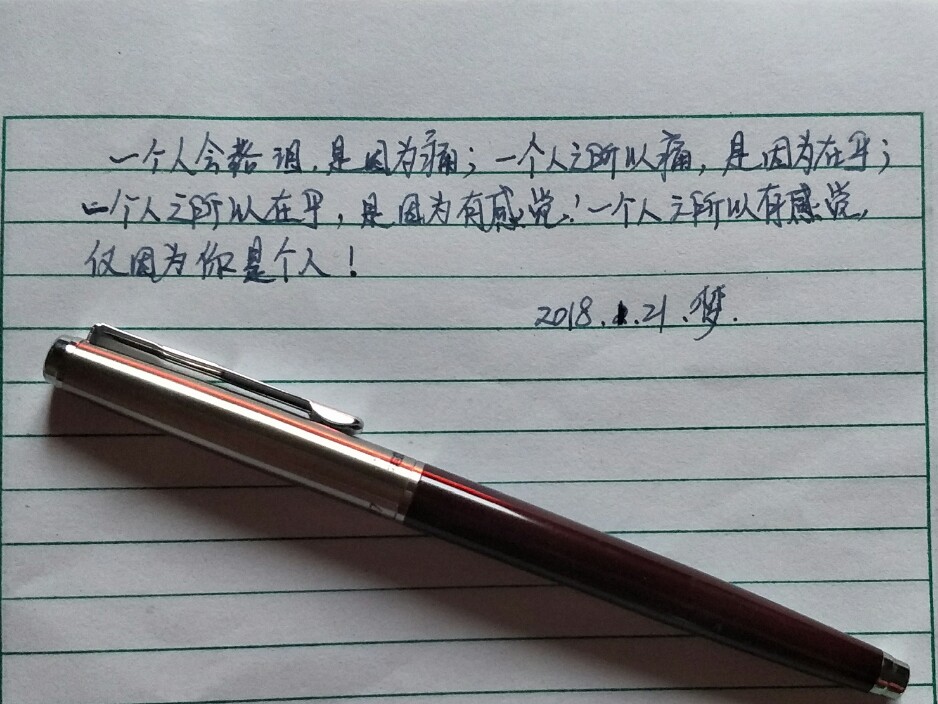 一个人会落泪，是因为痛；一个人之所以痛，是因为在乎；
一个人之所以在乎，是因为有感觉；一个人之所以有感觉，
仅因为你是个人！
2018.1.21.梦.